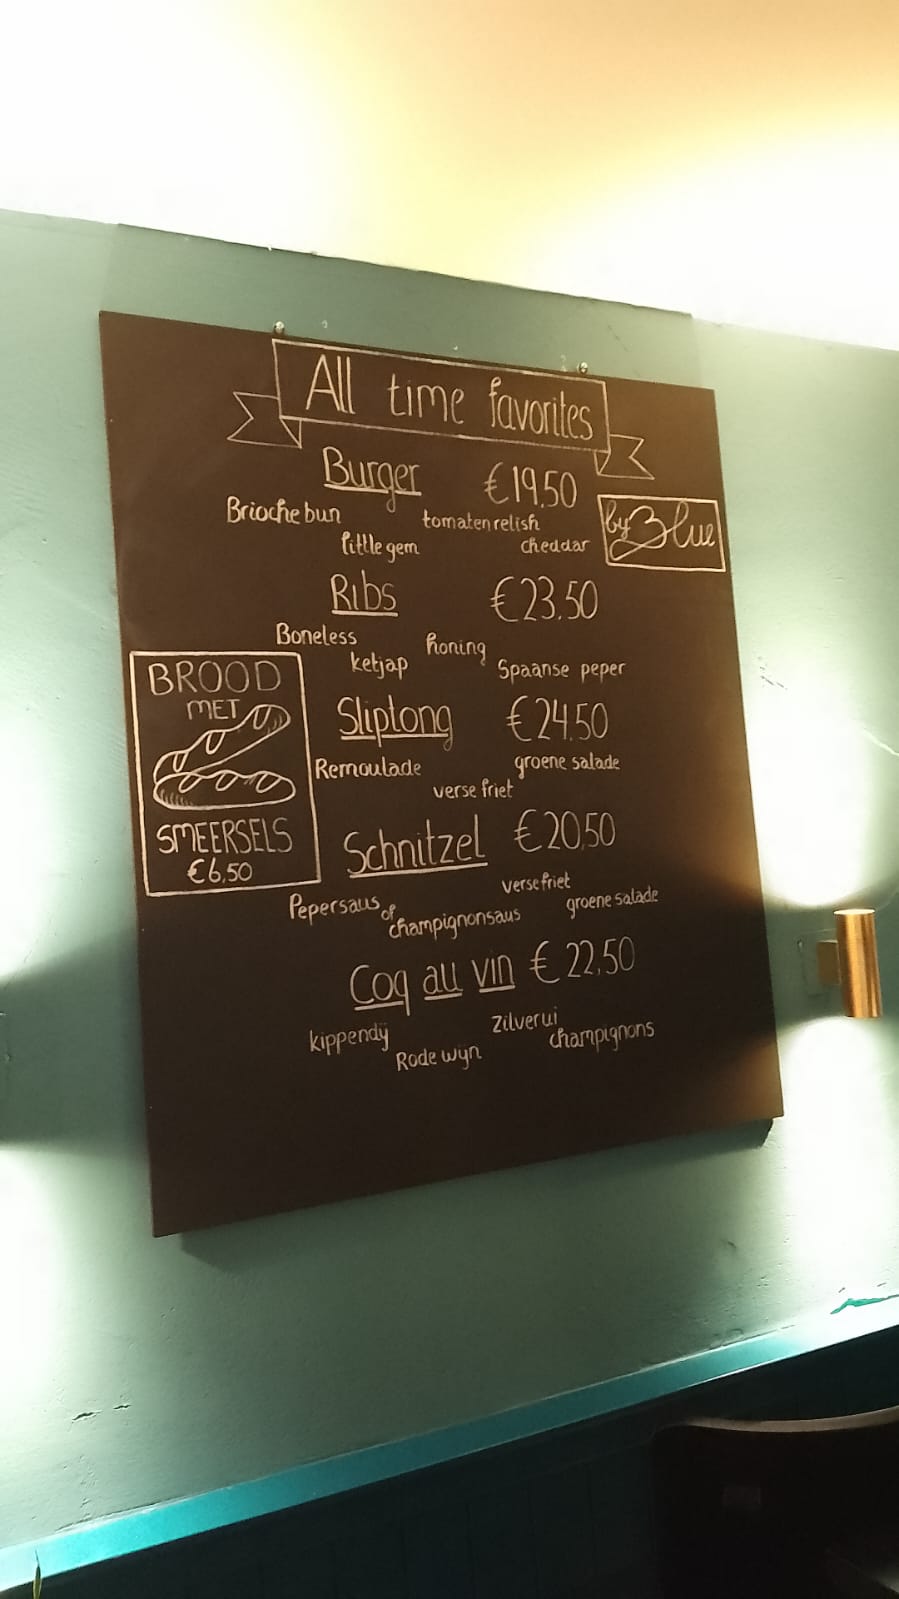 All time favorites
Burger €19,50
Brioche bun tomaten relish
little gem cheddar
by Blue
Ribs €23,50
Boneless honing
ketjap Spaanse peper
Sliptong €24,50
Remoulade groene salade
verse friet
Schnitzel €20,50
Pepersaus of champignonsaus verse friet groene salade
Coq au vin €22,50
kippendij zilverui
Rode wijn champignons
BROOD
MET
SMEERSELS
€6,50